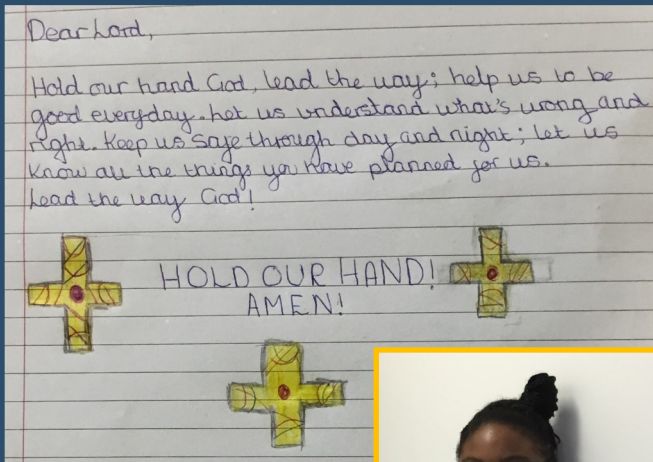 Dear Lord,
Hold our hand God, lead the way; help us to be
good everyday. Let us understand what's wrong and
right. Keep us safe through day and night; let us
know all the things you have planned for us.
Lead the way God!
HOLD OUR HAND!
AMEN!